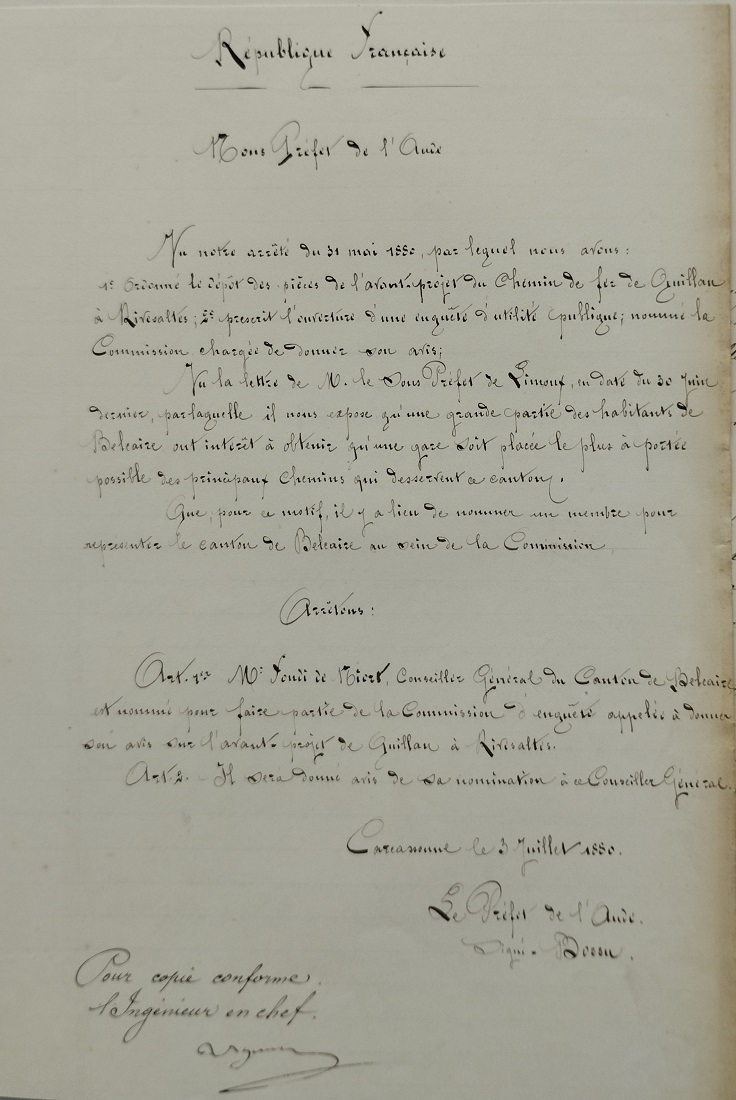 République Française
Nous Préfet de l'Aude
Vu notre arrêté du 31 mai 1880, par lequel nous avons :
1º Ordonné le dépôt des pièces de l'avant-projet du Chemin de fer de Quillan
à Rivesaltes ; 2º prescrit l'ouverture d'une enquête d'utilité publique ; nommé la
Commission chargée de donner son avis ;
Vu la lettre de M. le Sous Préfet de Limoux, en date du 30 Juin
dernier, par laquelle il nous expose qu'une grande partie des habitants de
Belcaire ont intérêt à obtenir qu'une gare soit placée le plus à portée
possible des principaux chemins qui desservent ce canton.
Que, pour ce motif, il y a lieu de nommer un membre pour
représenter le canton de Belcaire au sein de la Commission
Arrêtons :
Art. 1er Mr Fondi de Niort, Conseiller Général du Canton de Belcaire
est nommé pour faire partie de la Commission d'enquête appelée à donner
son avis sur l'avant-projet de Quillan à Rivesaltes.
Art. 2. Il sera donné avis de sa nomination à ce Conseiller Général.
Carcassonne le 3 Juillet 1880.
Le Préfet de l'Aude.
Signé - Bossu.
Pour copie conforme.
l'Ingénieur en chef.